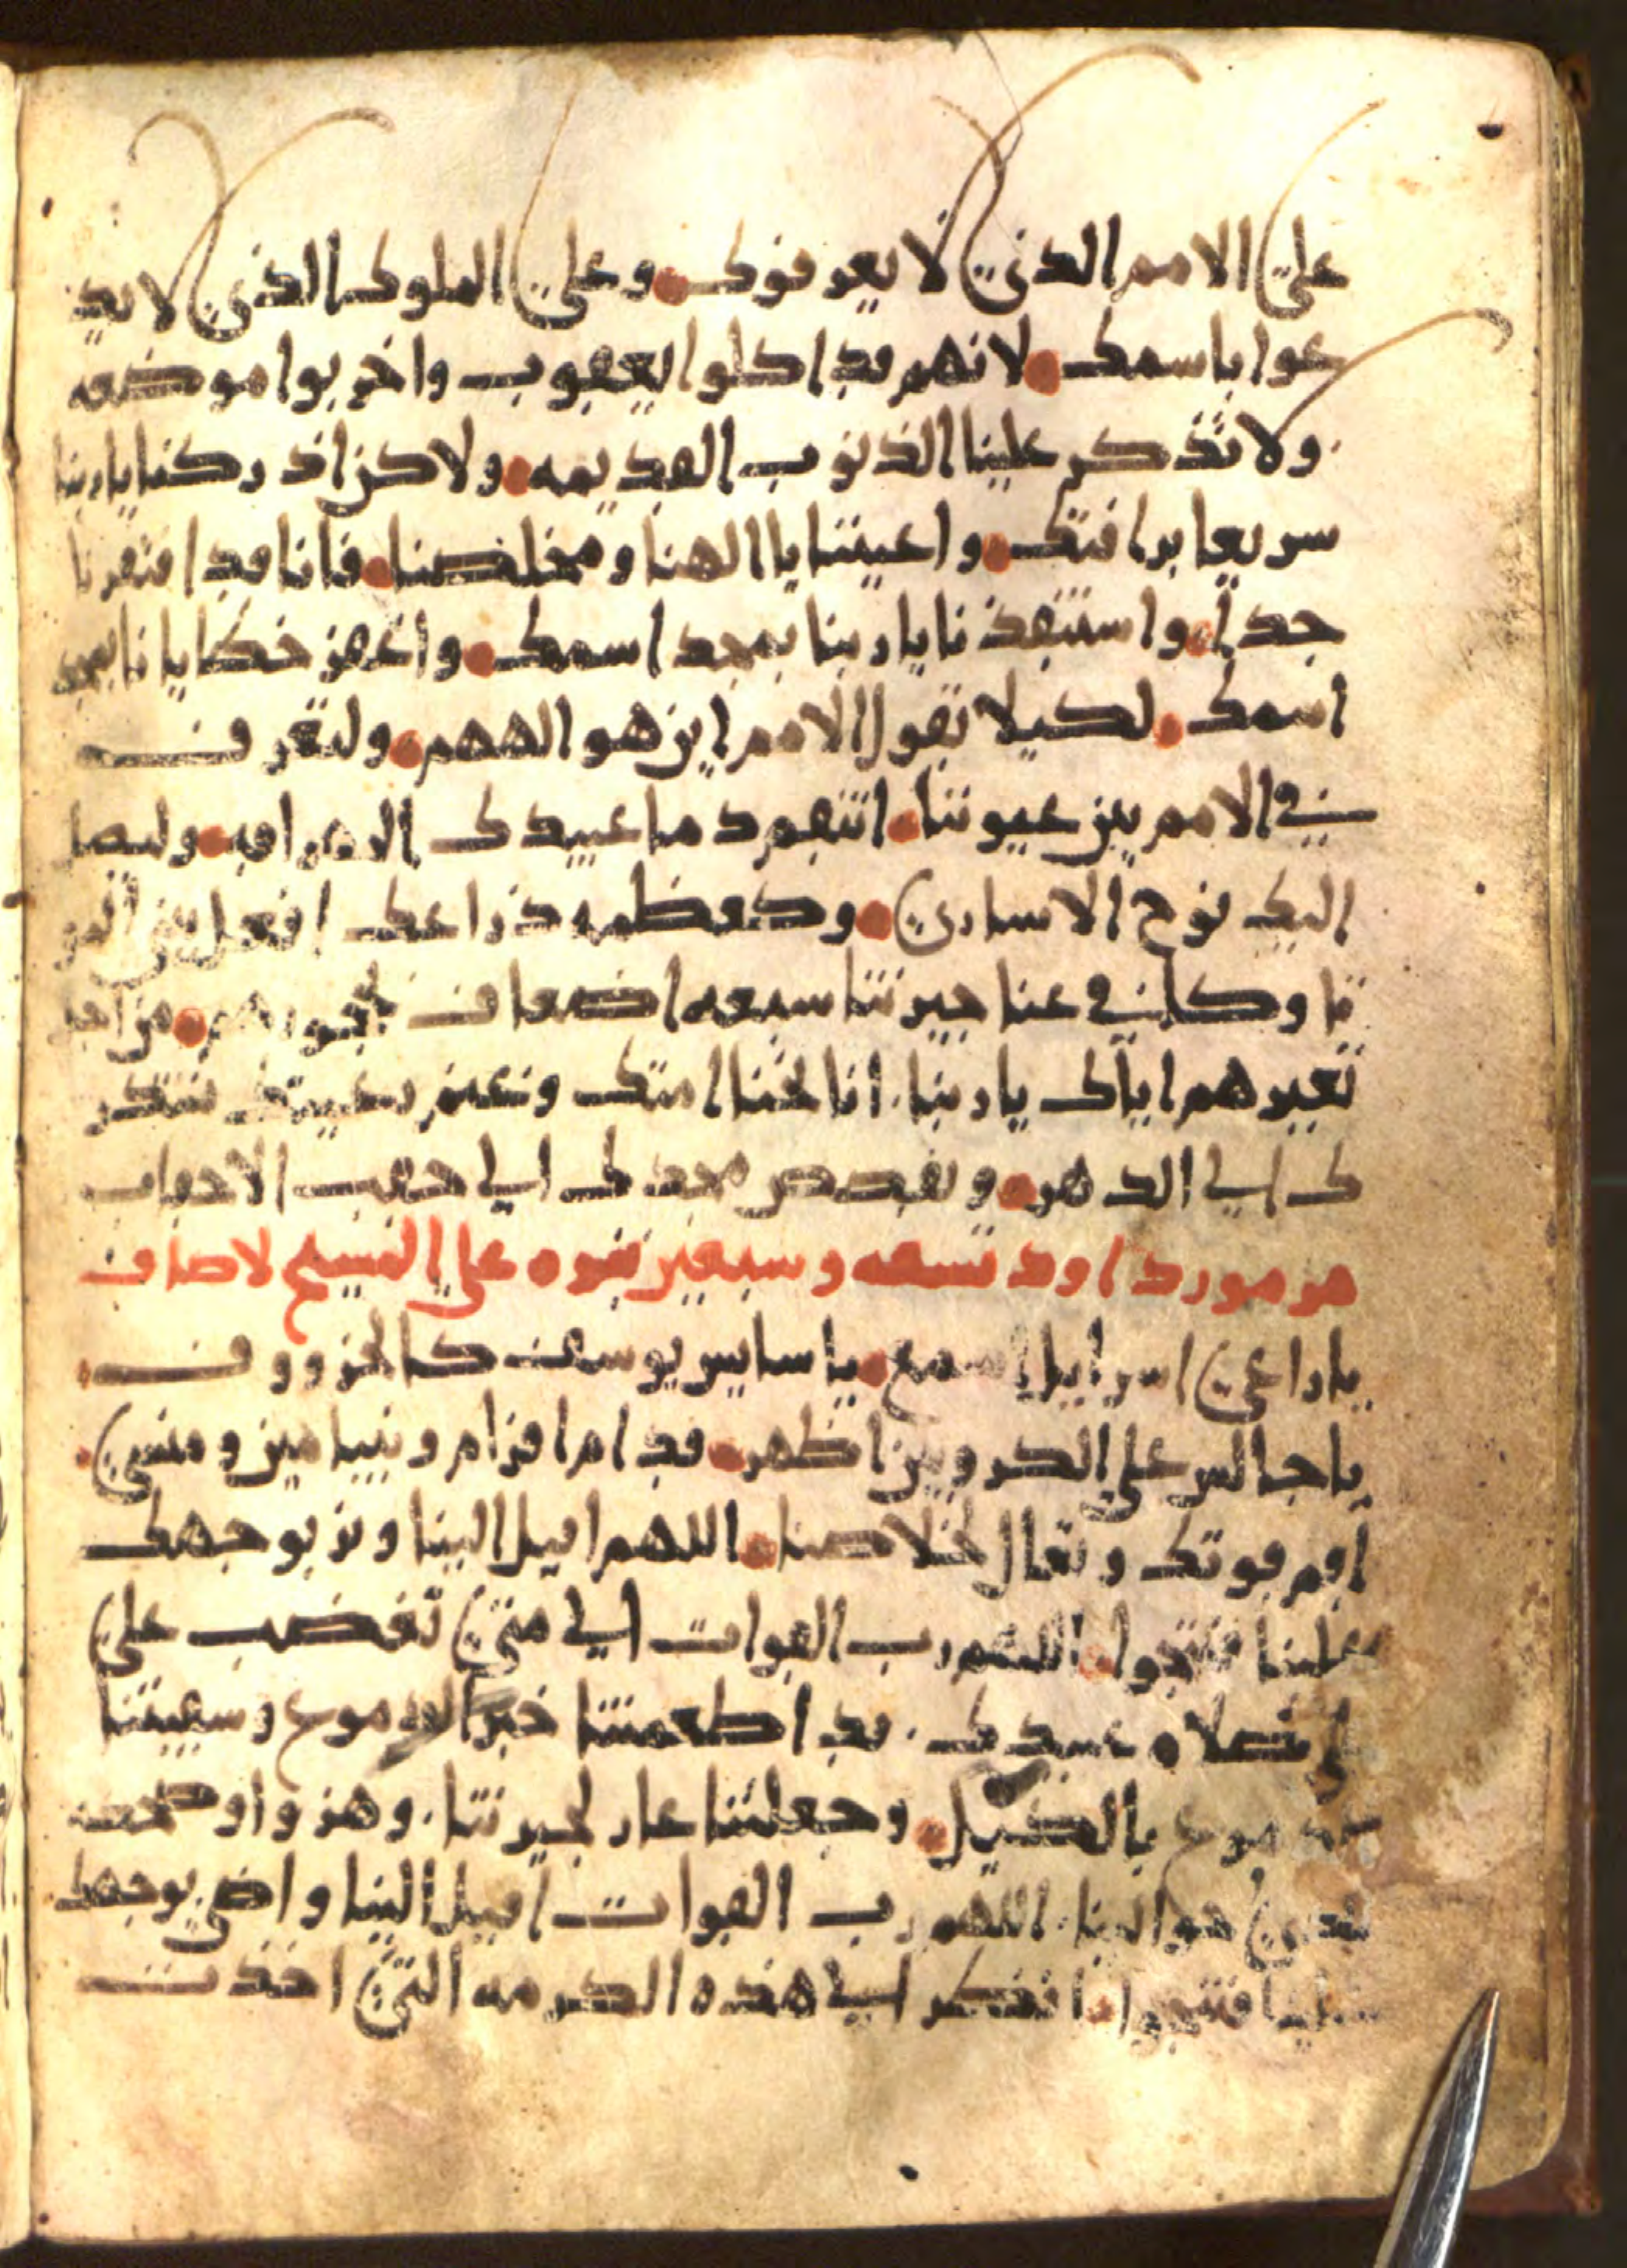 على الامم الذين لا يعرفونك وعلى الملوك الذين لا يد
عوا باسمك لانهم قد اكلوا يعقوب واخربوا موضعه
ولا تذكر علينا الذنوب القديمه ولاكن اذركنا يا ربنا
سريعا برافتك واعيننا يا الهنا ومخلصنا فانا قد افتقرنا
جدا واستنقذنا يا ربنا بمجد اسمك واغفر خطايانا بمجد
اسمك لكيلا تقول الامم اين هو الههم ولتعرف
في الامم بين عيوننا انتقم دما عبيدك المهراقه وليصل
اليك نوح الاسارى وكعظمه ذراعك افعل بين
نا وكافي عنا جيرتنا سبعه اضعاف في حجورهم من اجل
تعييرهم اياك يا ربنا انا نحننا امتك وغنم رعيتك نشكر
ك الى الدهر ونقصص مجدك الى حقب الاحقاب
مزمور داود تسعه وسبعين نبوه على المسيح لاصاف
يا راعى اسرايل اسمع يا سايس يوسف كالخروف
يا جالس على الكروبين اظهر قدام افرام وبنيامين ومنسى
اقم قوتك وتعال لخلاصنا اللهم اقبل الينا ونر بوجهك
علينا فننجوا اللهم رب القوات الى متى تغضب على
صلاه عبيدك قد اطعمتنا خبز الدموع وسقيتنا
دموع بالكيل وجعلتنا عار لجيرتنا وهزوا وضحكه
هوالينا اللهم رب القوات اقبل الينا واضي بوجهك
علينا فننجوا افذكر الى هذه الكرمه التى اخذت